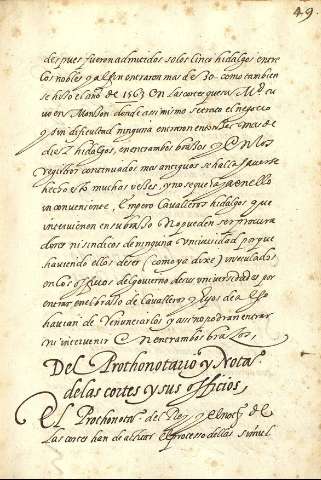 49.
despues fueron admitidos solos cinco hidalgos entre
los nobles y al fin entraron mas de 30. como tambien
se hizo el año de 1563 en las cortes que su M.d tu
vo en Monson donde assi mismo se trato el negocio
y sin dificultad ninguna entraron entonces mas de
diez hidalgos, en entrambos braços y en los
registros continuados mas antiguos se halla haverse
hecho esto muchos vezes, y no se puso jamas en ello
inconveniente, Empero Cavalleros hidalgos que
intervienen en su brasso No pueden ser procura
dores ni sindicos de ninguna Universidad porque
haviendo ellos de ser (como ya dixe) inseculados
en los officios del govierno de sus universidades por
entrar en el brasso de Cavalleros y hijos de algo
havian de renunciarlos y assi no podran entrar
ni intervenir en entrambos brassos,
Del Prothonotario y Nota.
de las cortes y sus officios,
El Prothonota.o del Rey y el not.o de
las cortes han de alsar el processo dellas simul